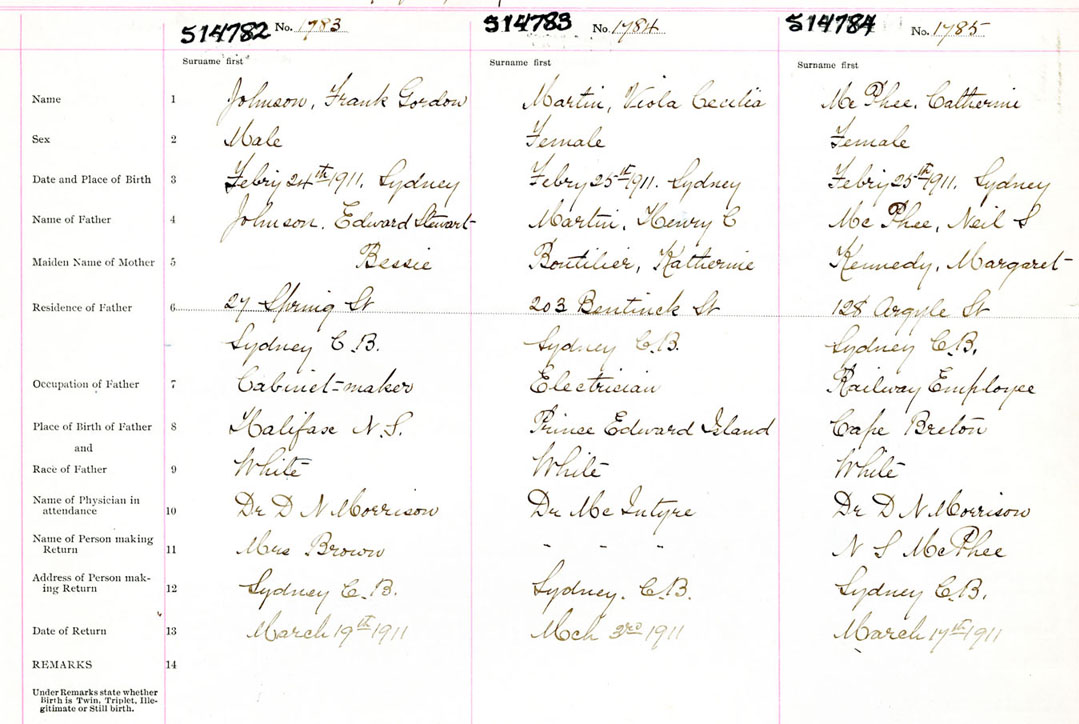 514782 No. 1783 514783 No. 1784 514784 No. 1785
Surname first Surname first Surname first
Name 1 Johnson, Frank Gordon Martin, Viola Cecilia Mc Phee, Catherine
Sex 2 Male Female Female
Date and Place of Birth 3 Febry 24th 1911. Sydney Febry 25th 1911. Sydney Febry 25th 1911. Sydney
Name of Father 4 Johnson, Edward Stewart Martin, Henry C Mc Phee, Neil S
Maiden Name of Mother 5 Bessie Boutilier, Katherine Kennedy, Margaret
Residence of Father 6 27 Spring St 203 Bentinck St 128 Argyle St
Sydney C.B. Sydney C.B. Sydney C.B.
Occupation of Father 7 Cabinet-maker Electrician Railway Employee
Place of Birth of Father 8 Halifax N.S. Prince Edward Island Cape Breton
and
Race of Father 9 White White White
Name of Physician in
attendance 10 Dr D N Morrison Dr Mc Intyre Dr D N Morrison
Name of Person making
Return 11 Mrs Brown - - - N S McPhee
Address of Person mak-
ing Return 12 Sydney C.B. Sydney. C.B. Sydney C.B.
Date of Return 13 March 19th 1911 Mch 3rd 1911 March 17th 1911
REMARKS 14
Under Remarks state whether
Birth is Twin, Triplet, Ille-
gitimate or Still birth.